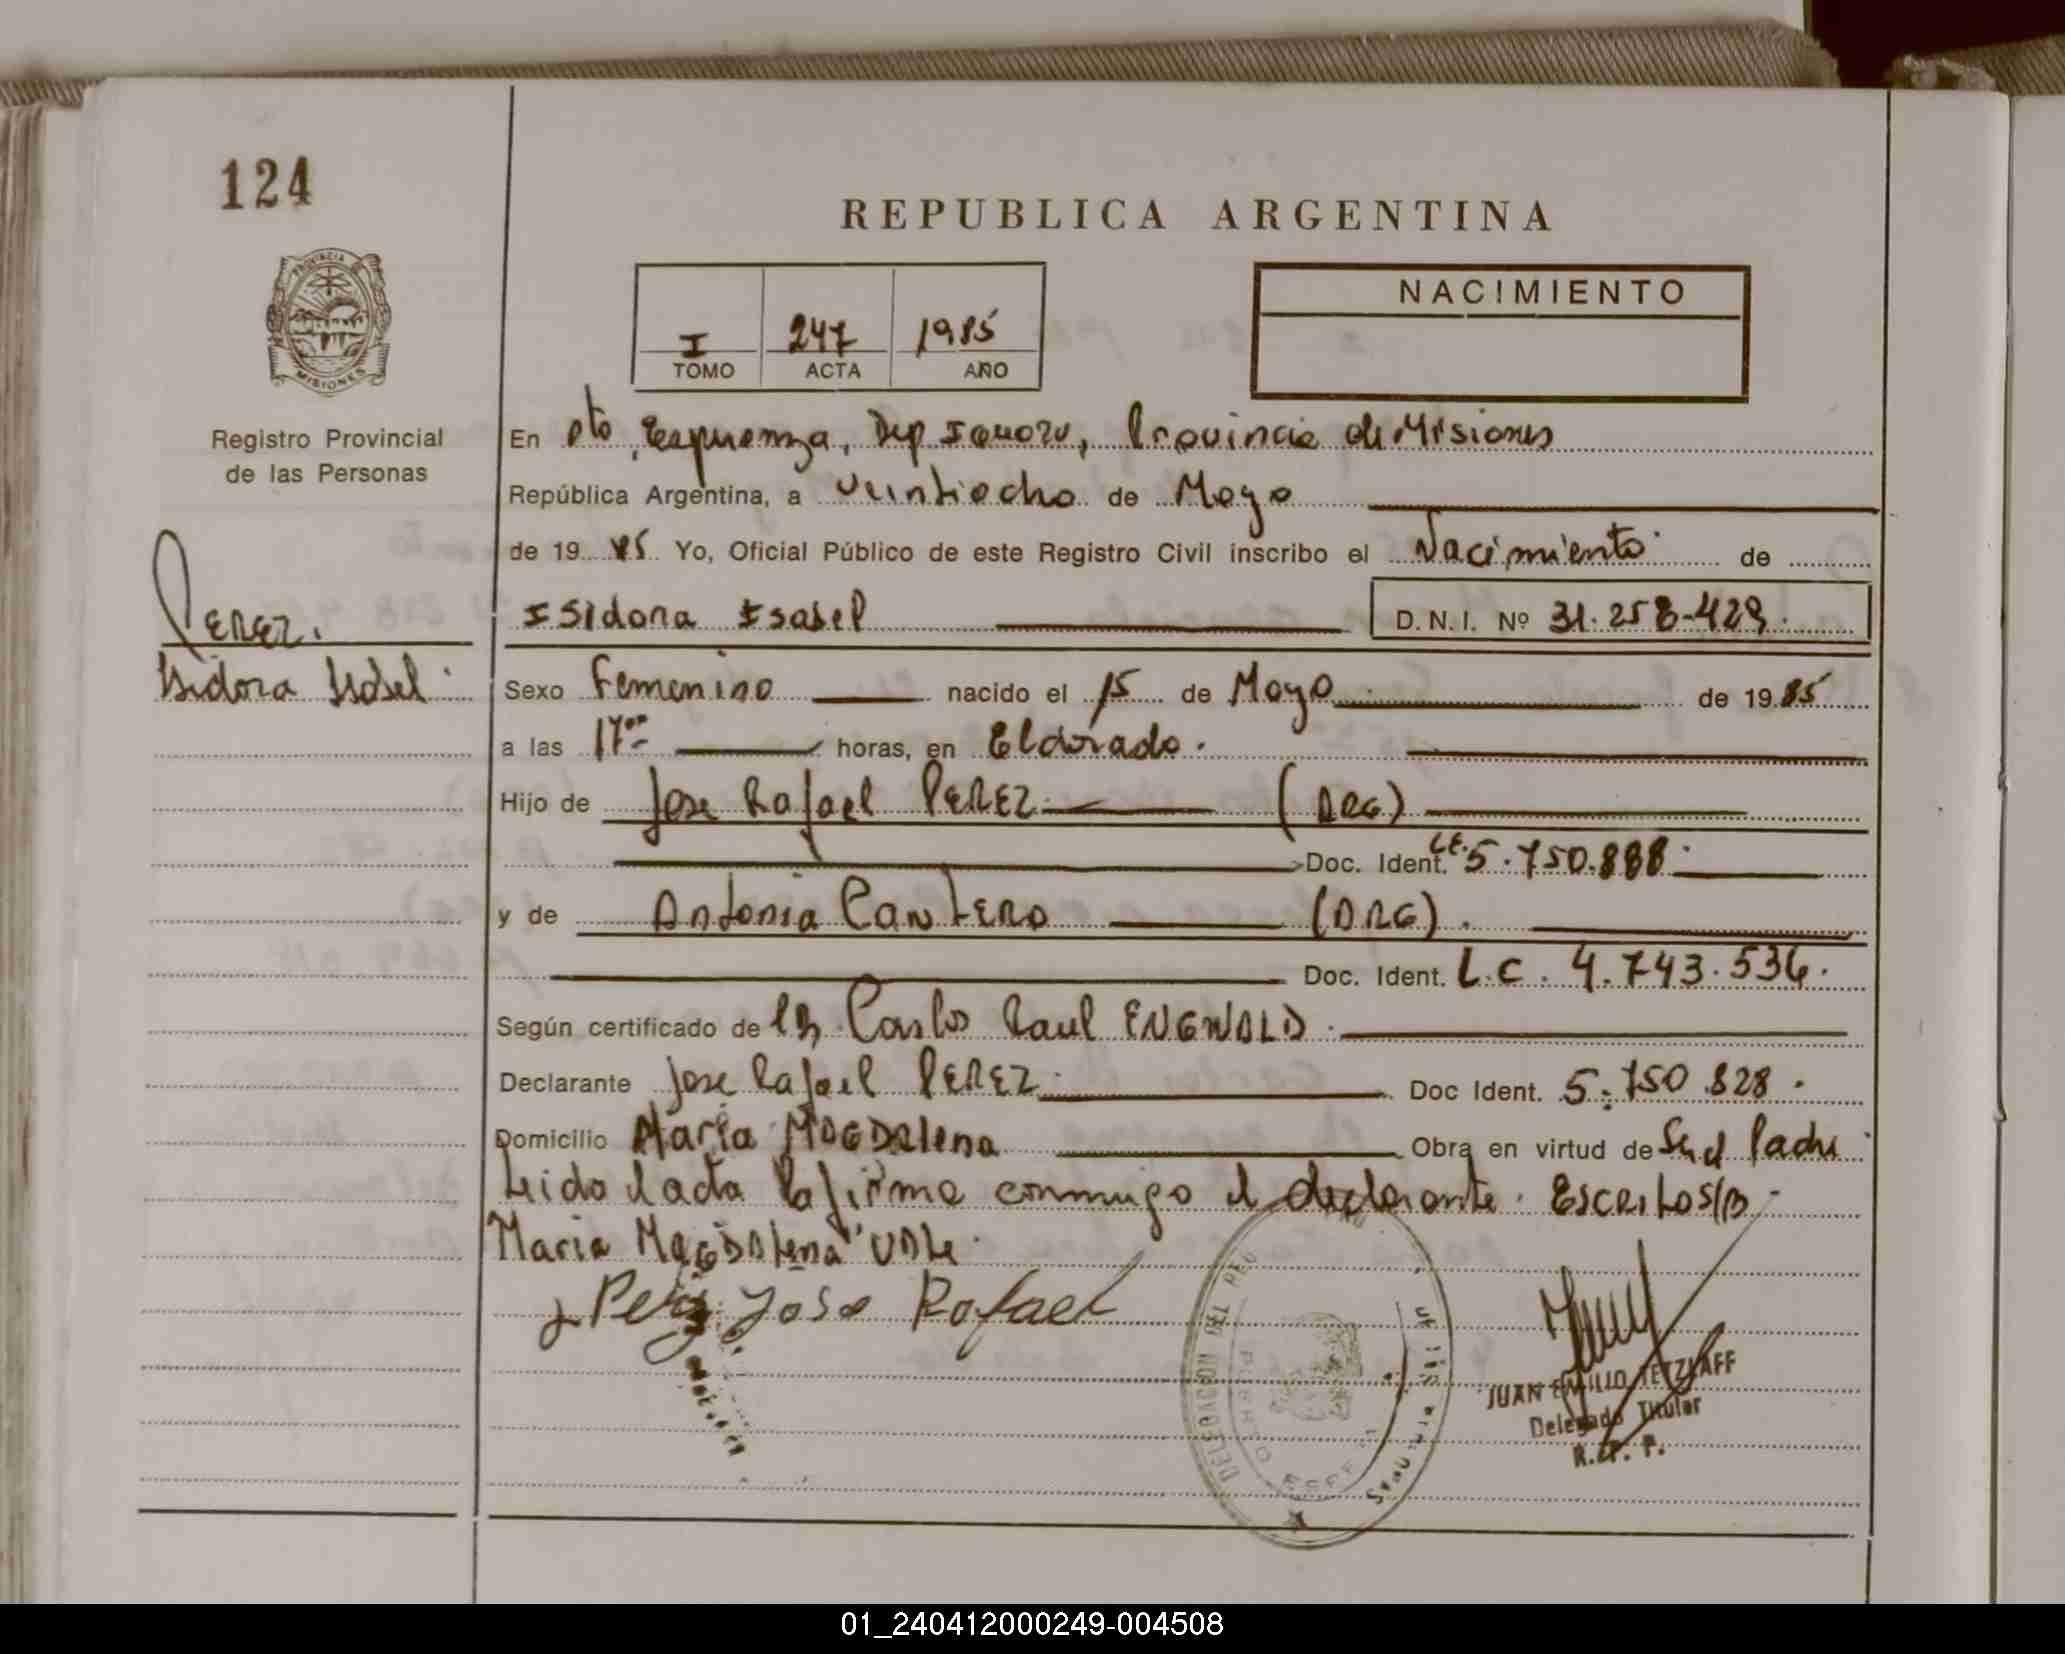 124
REPUBLICA ARGENTINA
PROVINCIA DE
MISIONES
I 247 1985
TOMO ACTA AÑO
NACIMIENTO
Registro Provincial
de las Personas
En Pto. Esperanza, Dep Iguazu, Provincia de Misiones
República Argentina, a veintiocho de Mayo
de 19 85 Yo, Oficial Público de este Registro Civil inscribo el Nacimiento de
Isidora Isabel D.N.I. Nº 31.258-429.
PEREZ.
Isidora Isabel
Sexo Femenino nacido el 15 de Mayo de 19 85
a las 17 horas, en Eldorado.
Hijo de Jose Rafael PEREZ (ARG)
Doc. Ident. 5.750.
y de Antonia CANTERO (ARG).
Doc. Ident. L.C. 4.743.536.
Según certificado de Carlos Raul ENGWALD.
Declarante Jose Rafael PEREZ. Doc Ident. 5.750.828.
Domicilio Maria Magdalena Obra en virtud de Padre
Leido el acta la firma conmigo el declarante. Escritos/B
Maria Magdalena Vale.
Perez Jose Rafael
DELEGACION DEL REG
PUERTO
JUAN EMILIO TETZLAFF
Delegado Titular
R. P. P.
01_240412000249-004508